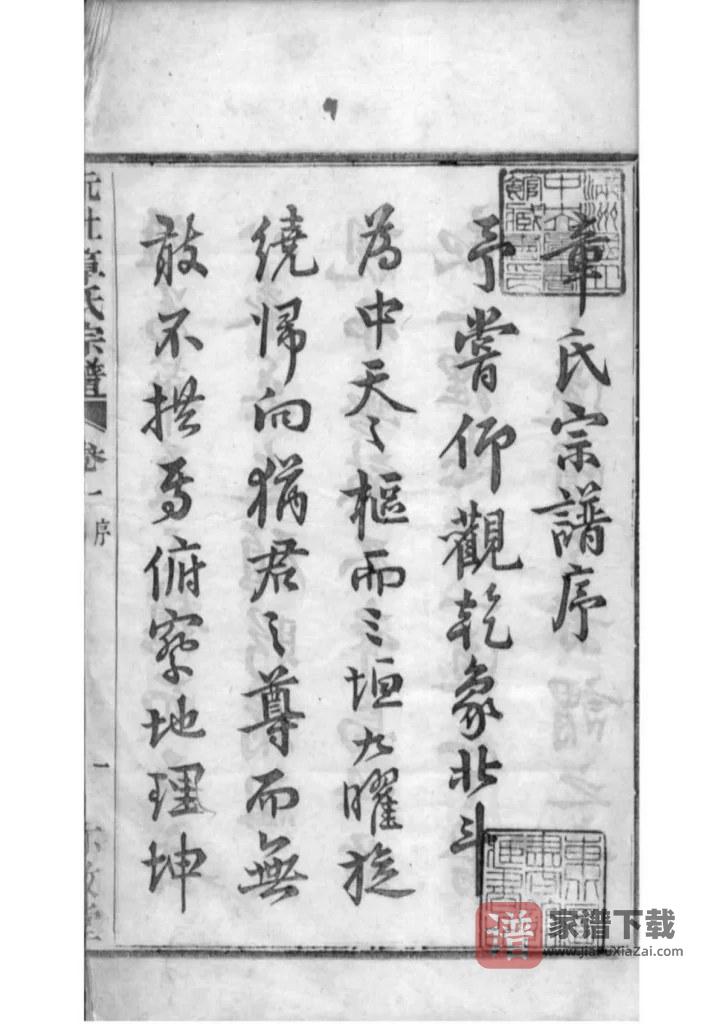 章氏宗譜序
予嘗仰觀乾象北斗
為中天之樞而三垣九曜旋
繞歸向猶君之尊而無
敢不拱焉俯察地理坤
章氏宗譜
卷一
序
一
家谱下载
www.jiaPuXiaZai.com
谱